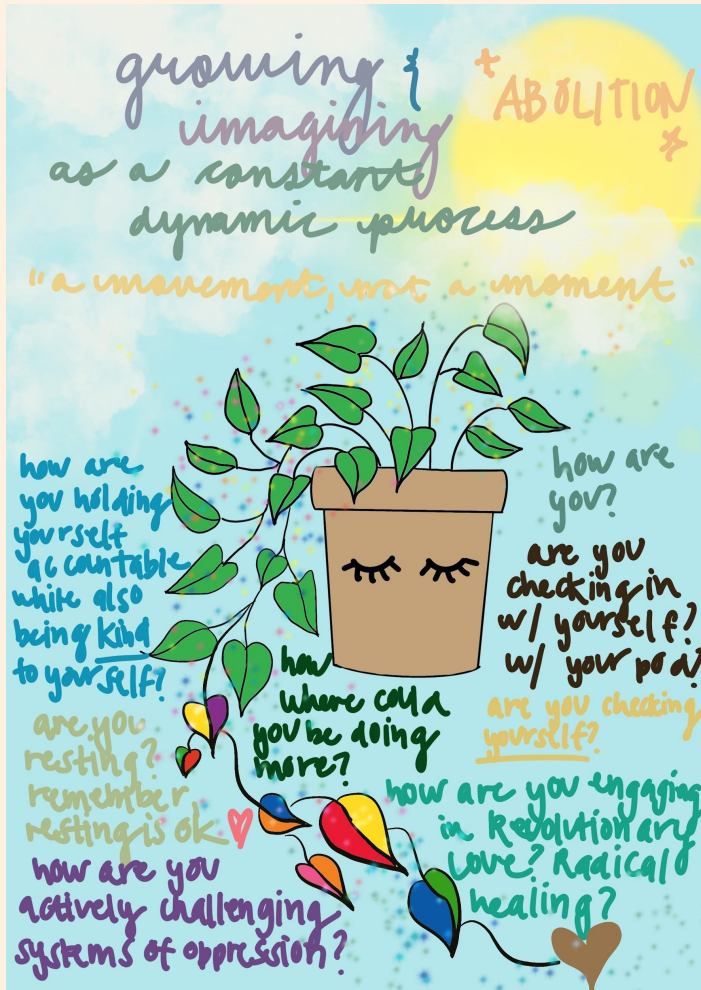 growing &
imagining
as a constant
dynamic process
ABOLITION
"a movement, not a moment"
how are
you holding
yourself
accountable
while also
being kind
to yourself?
how are
you?
are you
checking in
w/ yourself?
w/ your pod?
are you checking
yourself?
how
where could
you be doing
more?
are you
resting?
remember,
resting is ok
how are you engaging
in Revolutionary
Love? Radical
healing?
how are you
actively challenging
systems of oppression?